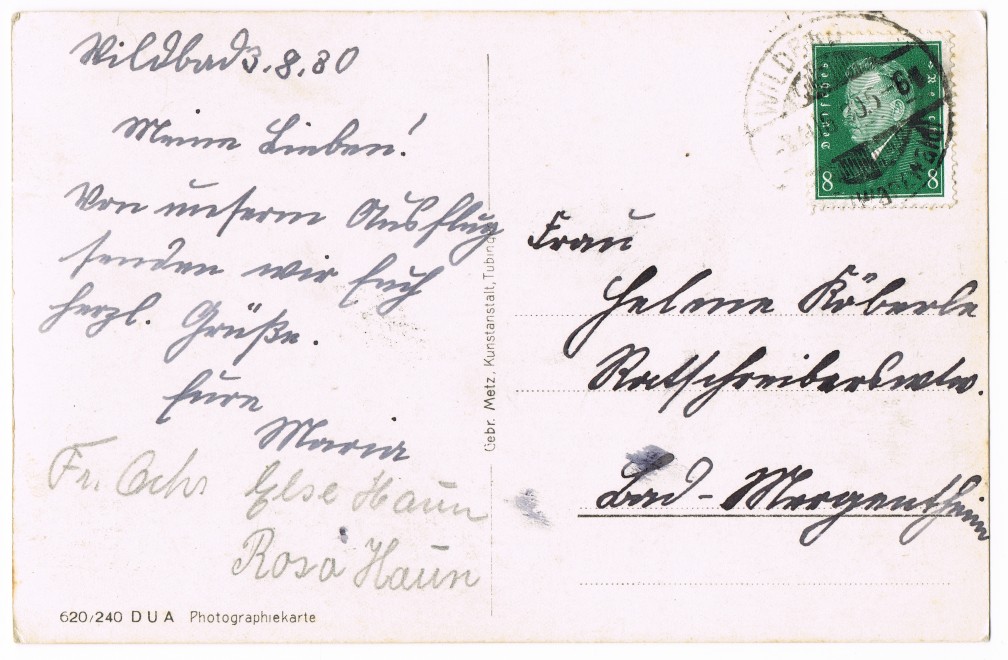 Wildbad 3.8.30
Meine Lieben!
Von unserm Ausflug
senden wir Euch
herzl. Grüße.
Eure
Maria
Fr. Ochs Else Haun
Rosa Haun
620/240 DUA Photographiekarte
Gebr. Metz, Kunstanstalt, Tübing
WILDBAD
5-6
Deutsches Reich
8 8
Frau
Helene Köberle
Ratschreiberswtw.
Bad-Mergentheim